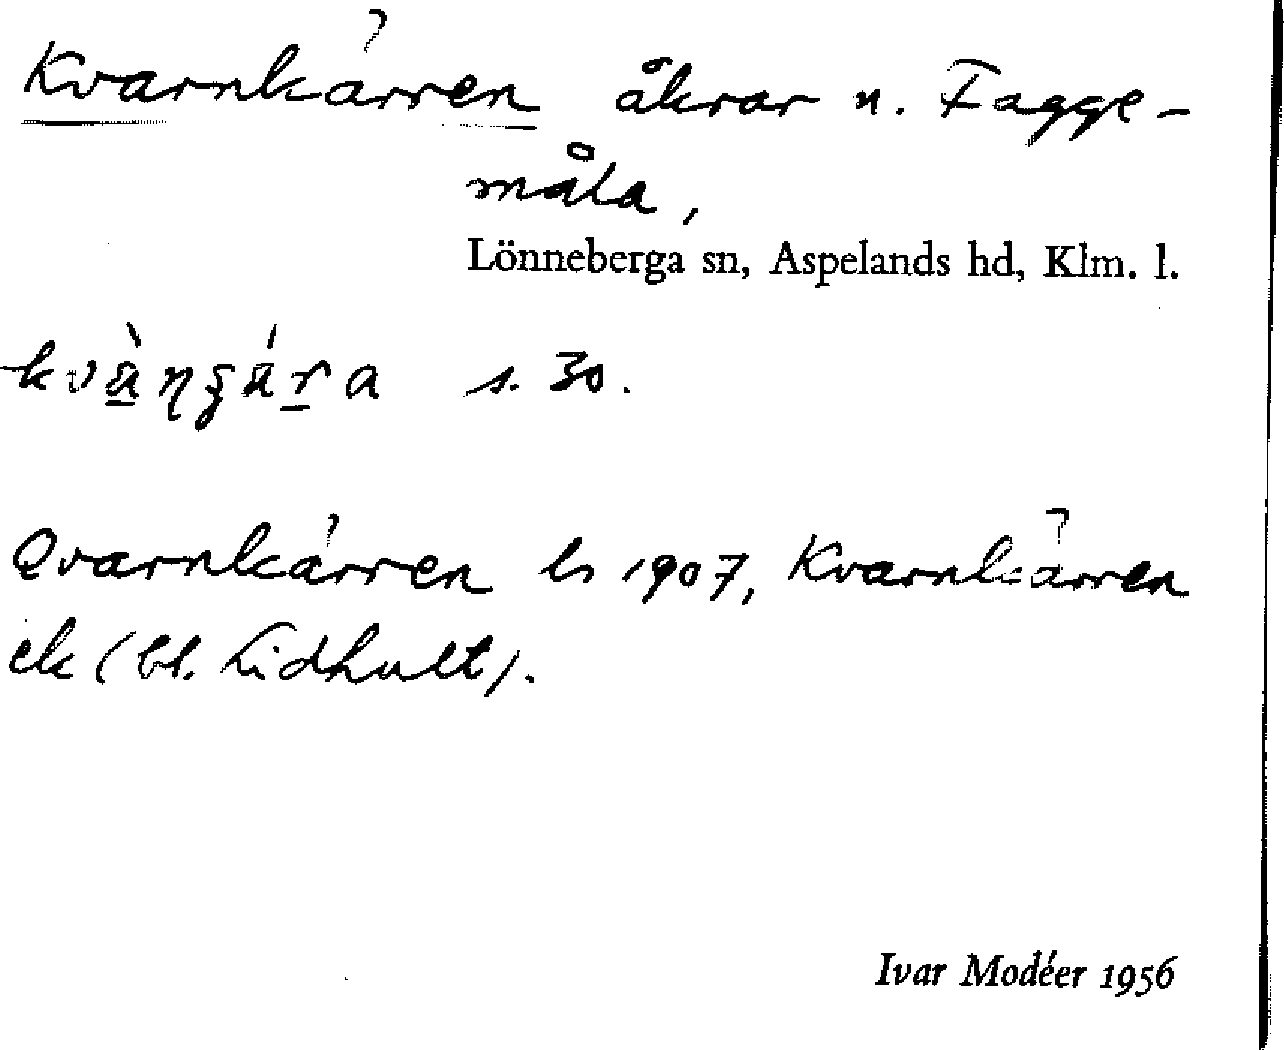 Kvarnkärren åkrar n. Fagge-
måla,
Lönneberga sn, Aspelands hd, Klm. l.
s. 30.
Qvarnkärren ls 1907, Kvarnkärren
ek (bl. Lidhult).
Ivar Modéer 1956